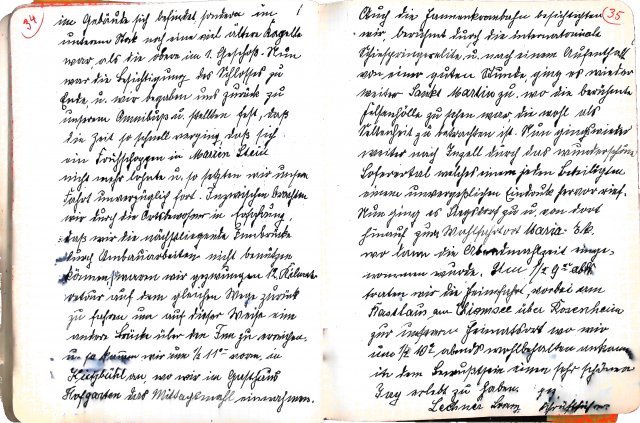 34
im Gebäude sich befindet sondern im
unteren Stock noch eine viel ältere Kapelle
war, als die obere im 1. Geschoß. Nun
war die Besichtigung des Schlosses zu
Ende, u. wir begaben uns zurück zu
unserem Omnibus u. stellten fest, daß
die Zeit so schnell verging, daß sich
ein Frühschoppen in Maria Stein
nicht mehr lohnte u. so setzten wir unsere
Fahrt unverzüglich fort. Inzwischen brachten
wir durch die Ortsbewohner in Erfahrung,
daß wir die nächstliegende Innbrücke
durch Umbauarbeiten nicht benützen
können, waren wir gezwungen 12 Kilmet.
retour auf dem gleichen Wege zurück
zu fahren um auf dieser Weise eine
andere Brücke über den Inn zu erreichen,
u. so kamen wir um ½ 11 vorm. in
Kitzbühl an, wo wir im Gasthaus
Hofgarten das Mittagsmahl einnahmen.
35
Auch die Hannenkammbahn besichtigten
wir, berühmt durch die internationale
Schispringerelite u. nach einem Aufenthalt
von einer guten Stunde, ging es wieder
weiter Sankt Martin zu, wo die berühmte
Felsenhölle zu sehen war, die wohl als
Seltenheit zu betrachten ist. Nun ging's wieder
weiter nach Inzell durch das wunderschöne
Loferertal welches einem jeden Beteiligten
einem unvergeßlichen Eindruck hervor rief.
Nun ging es Siegsdorf zu u. von dort
hinauf zum Wahlfahrtort Maria-Ek.
wo dann die Abendmahlzeit einge-
nommen wurde. Um ½ 9
traten wir die Heimfahrt, vorbei am
Rasthaus am Chiemsee über Rosenheim
zur unseren Heimatsort wo wir
uns ½ 10 abends wohlbehalten ankamen
in dem Bewußtsein einen sehr schönen
Tag erlebt zu haben. gez.
Lechner Schriftführer